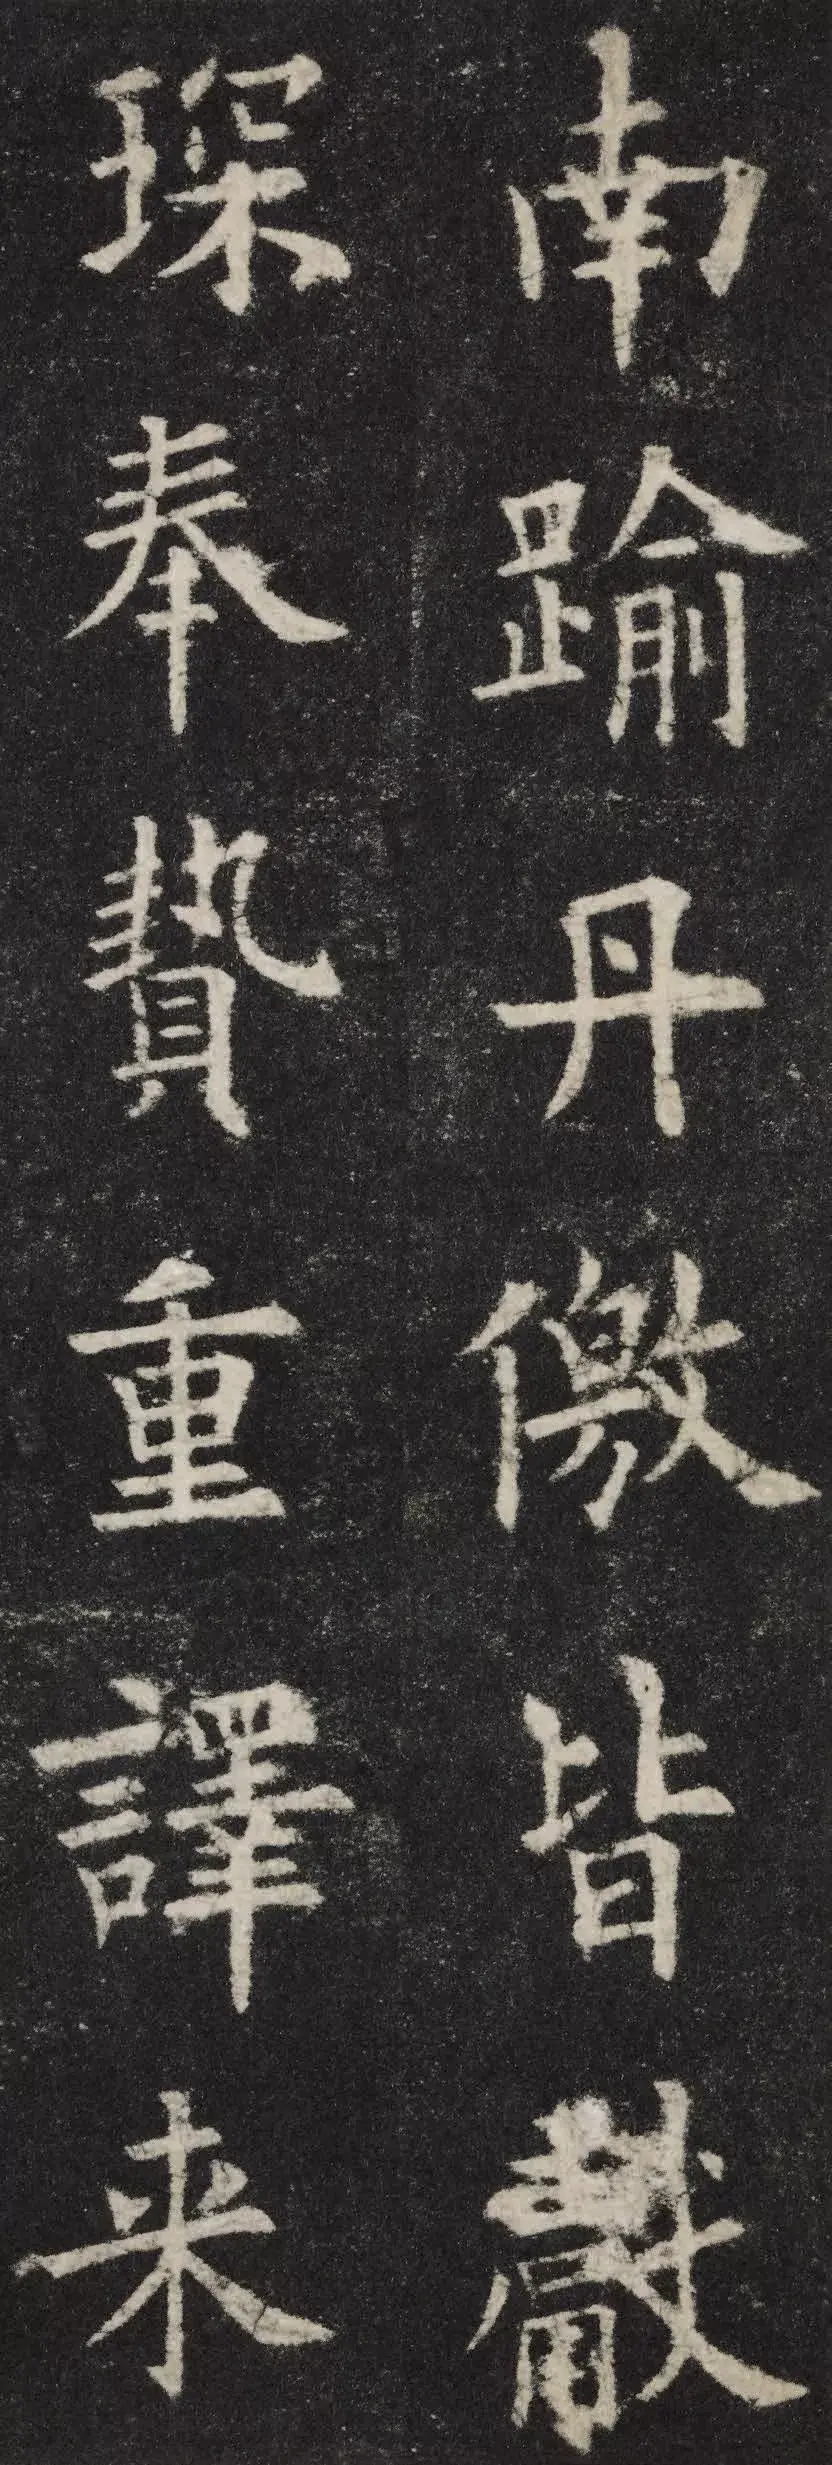 南踰丹儌皆獻
琛奉贄重譯来